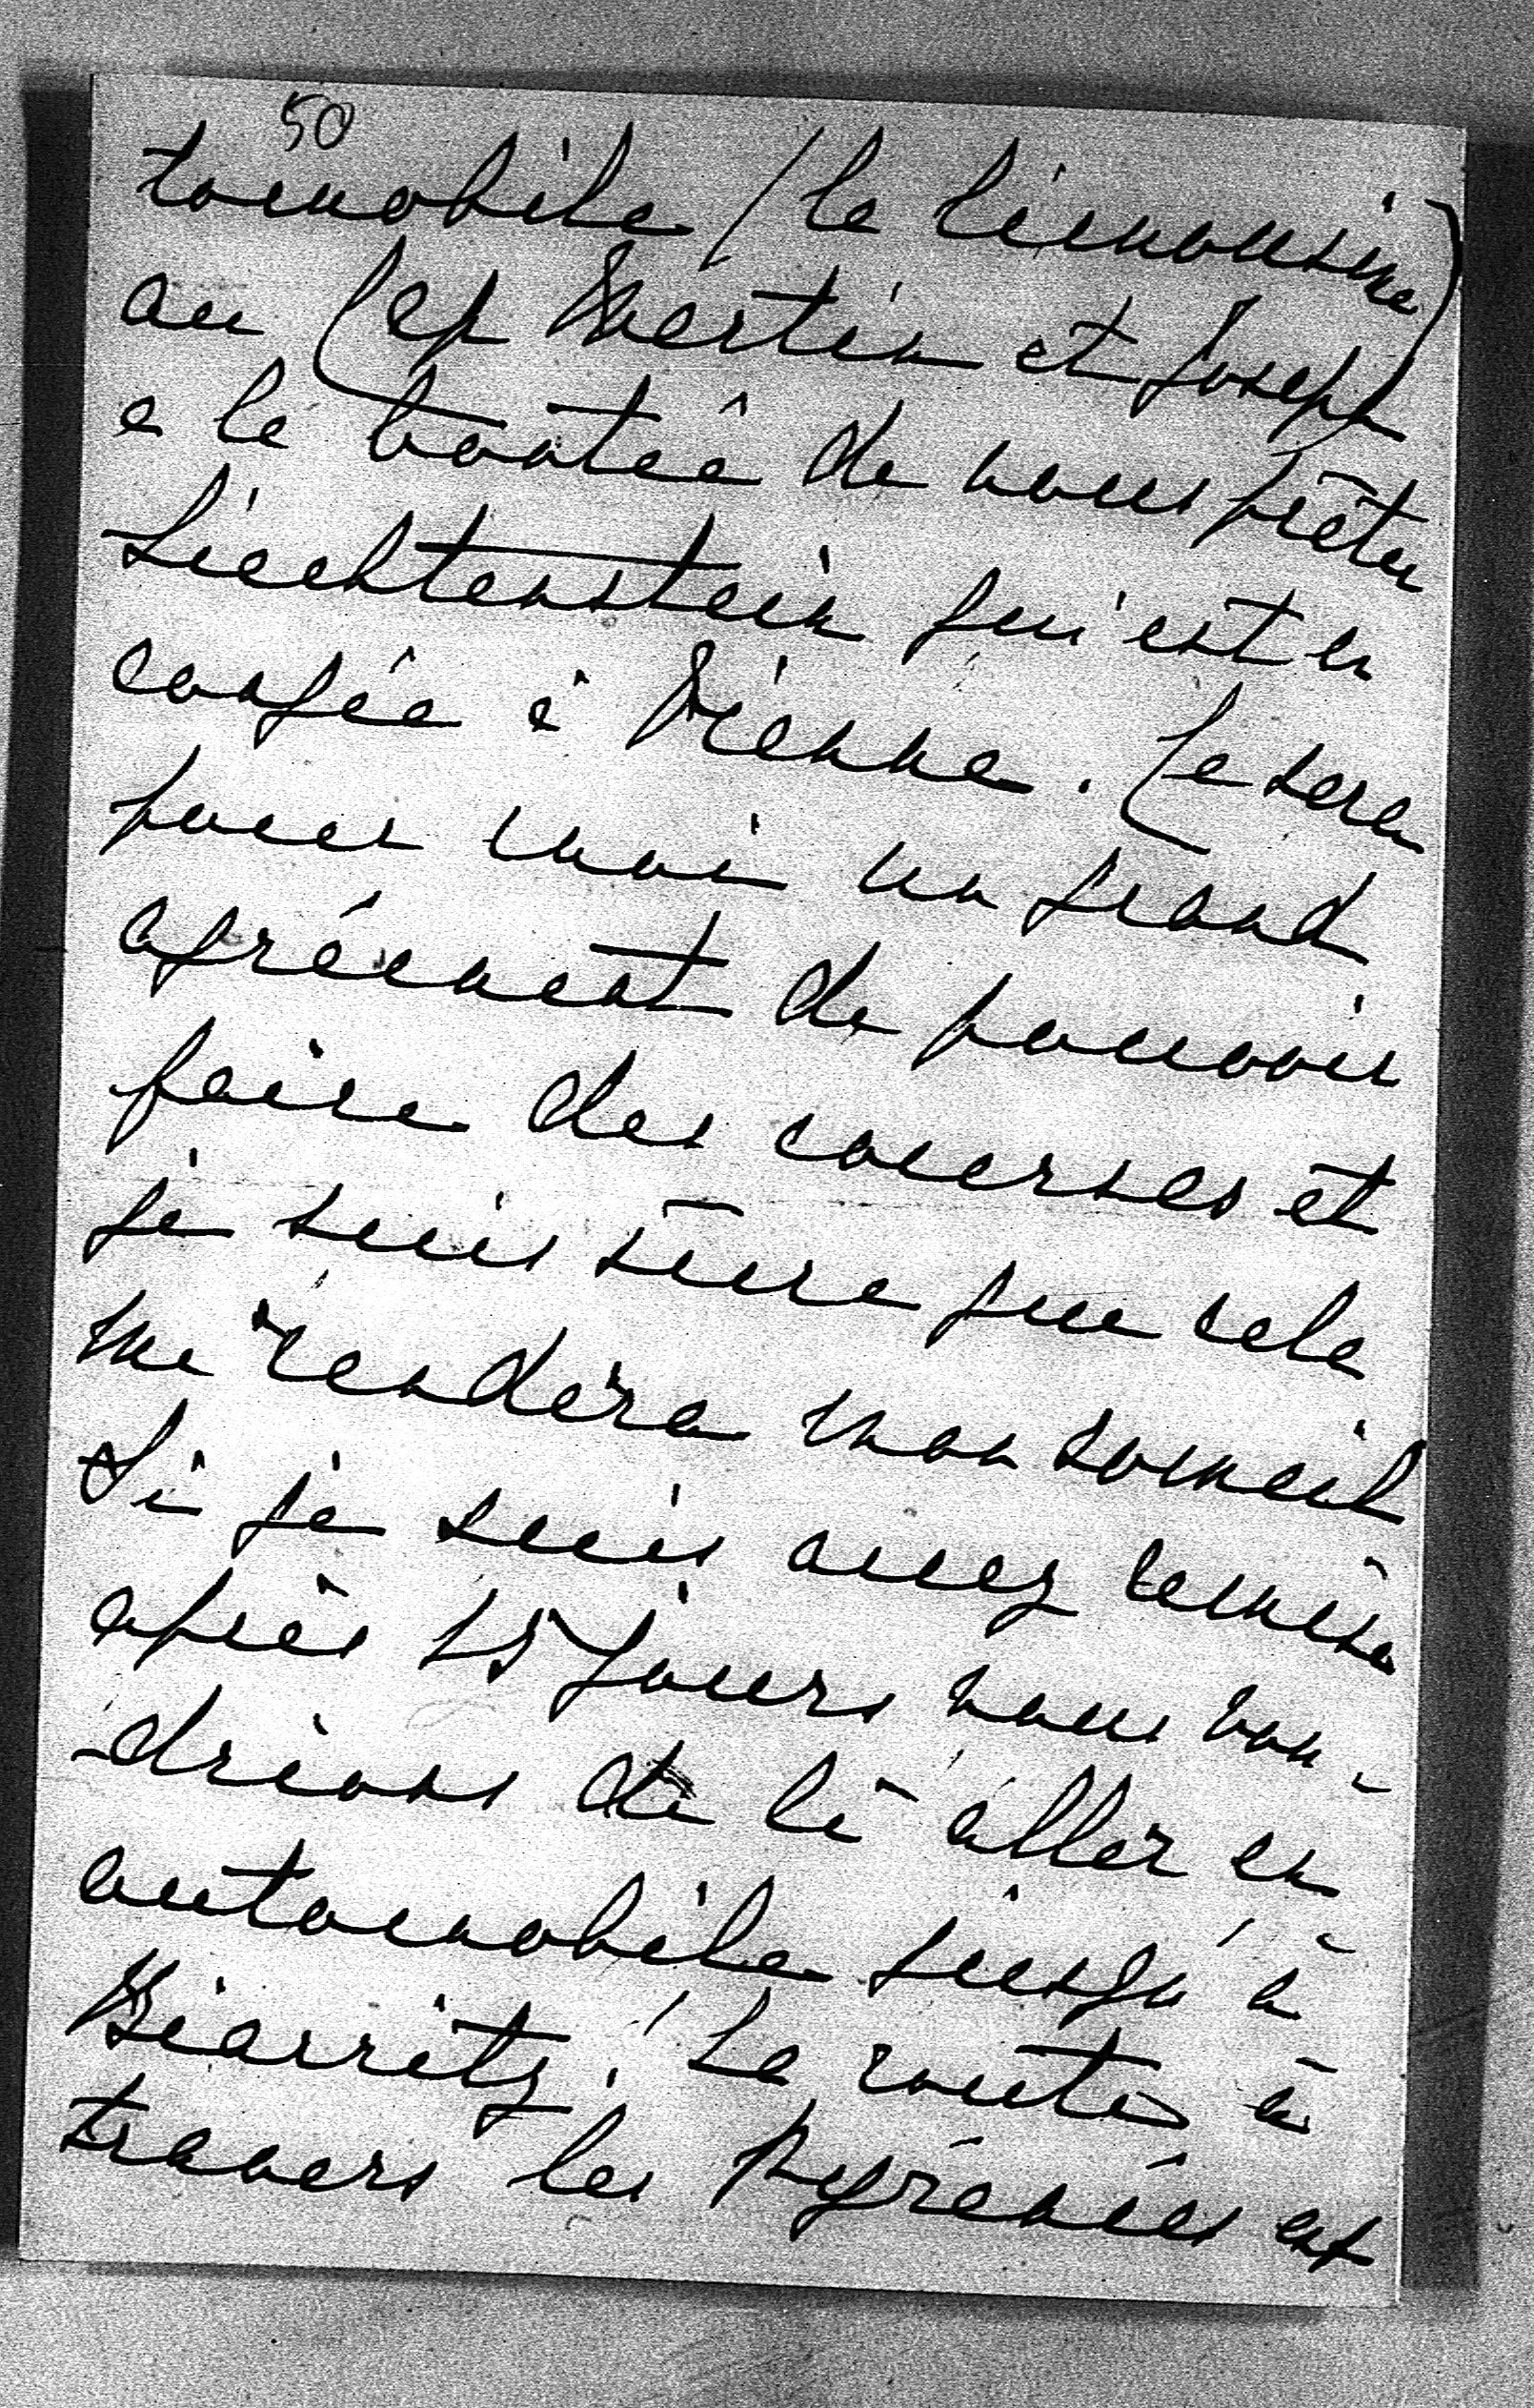 50
tomobile (la limousine)
au Cap Martin et Joseph
a la bontée de nous prêter
Liechtenstein qui est en
congée à Vienne. Ce sera
pour moi un grand
agrément de pouvoir
faire des courses et
je suis sûre que cela
me rendera mon someil
Si je suis assez remise
après 15 jours nous vou-
-drions de là aller en
automobile jusqu'à
Biarritz. La route à
travers les Pyrénées est